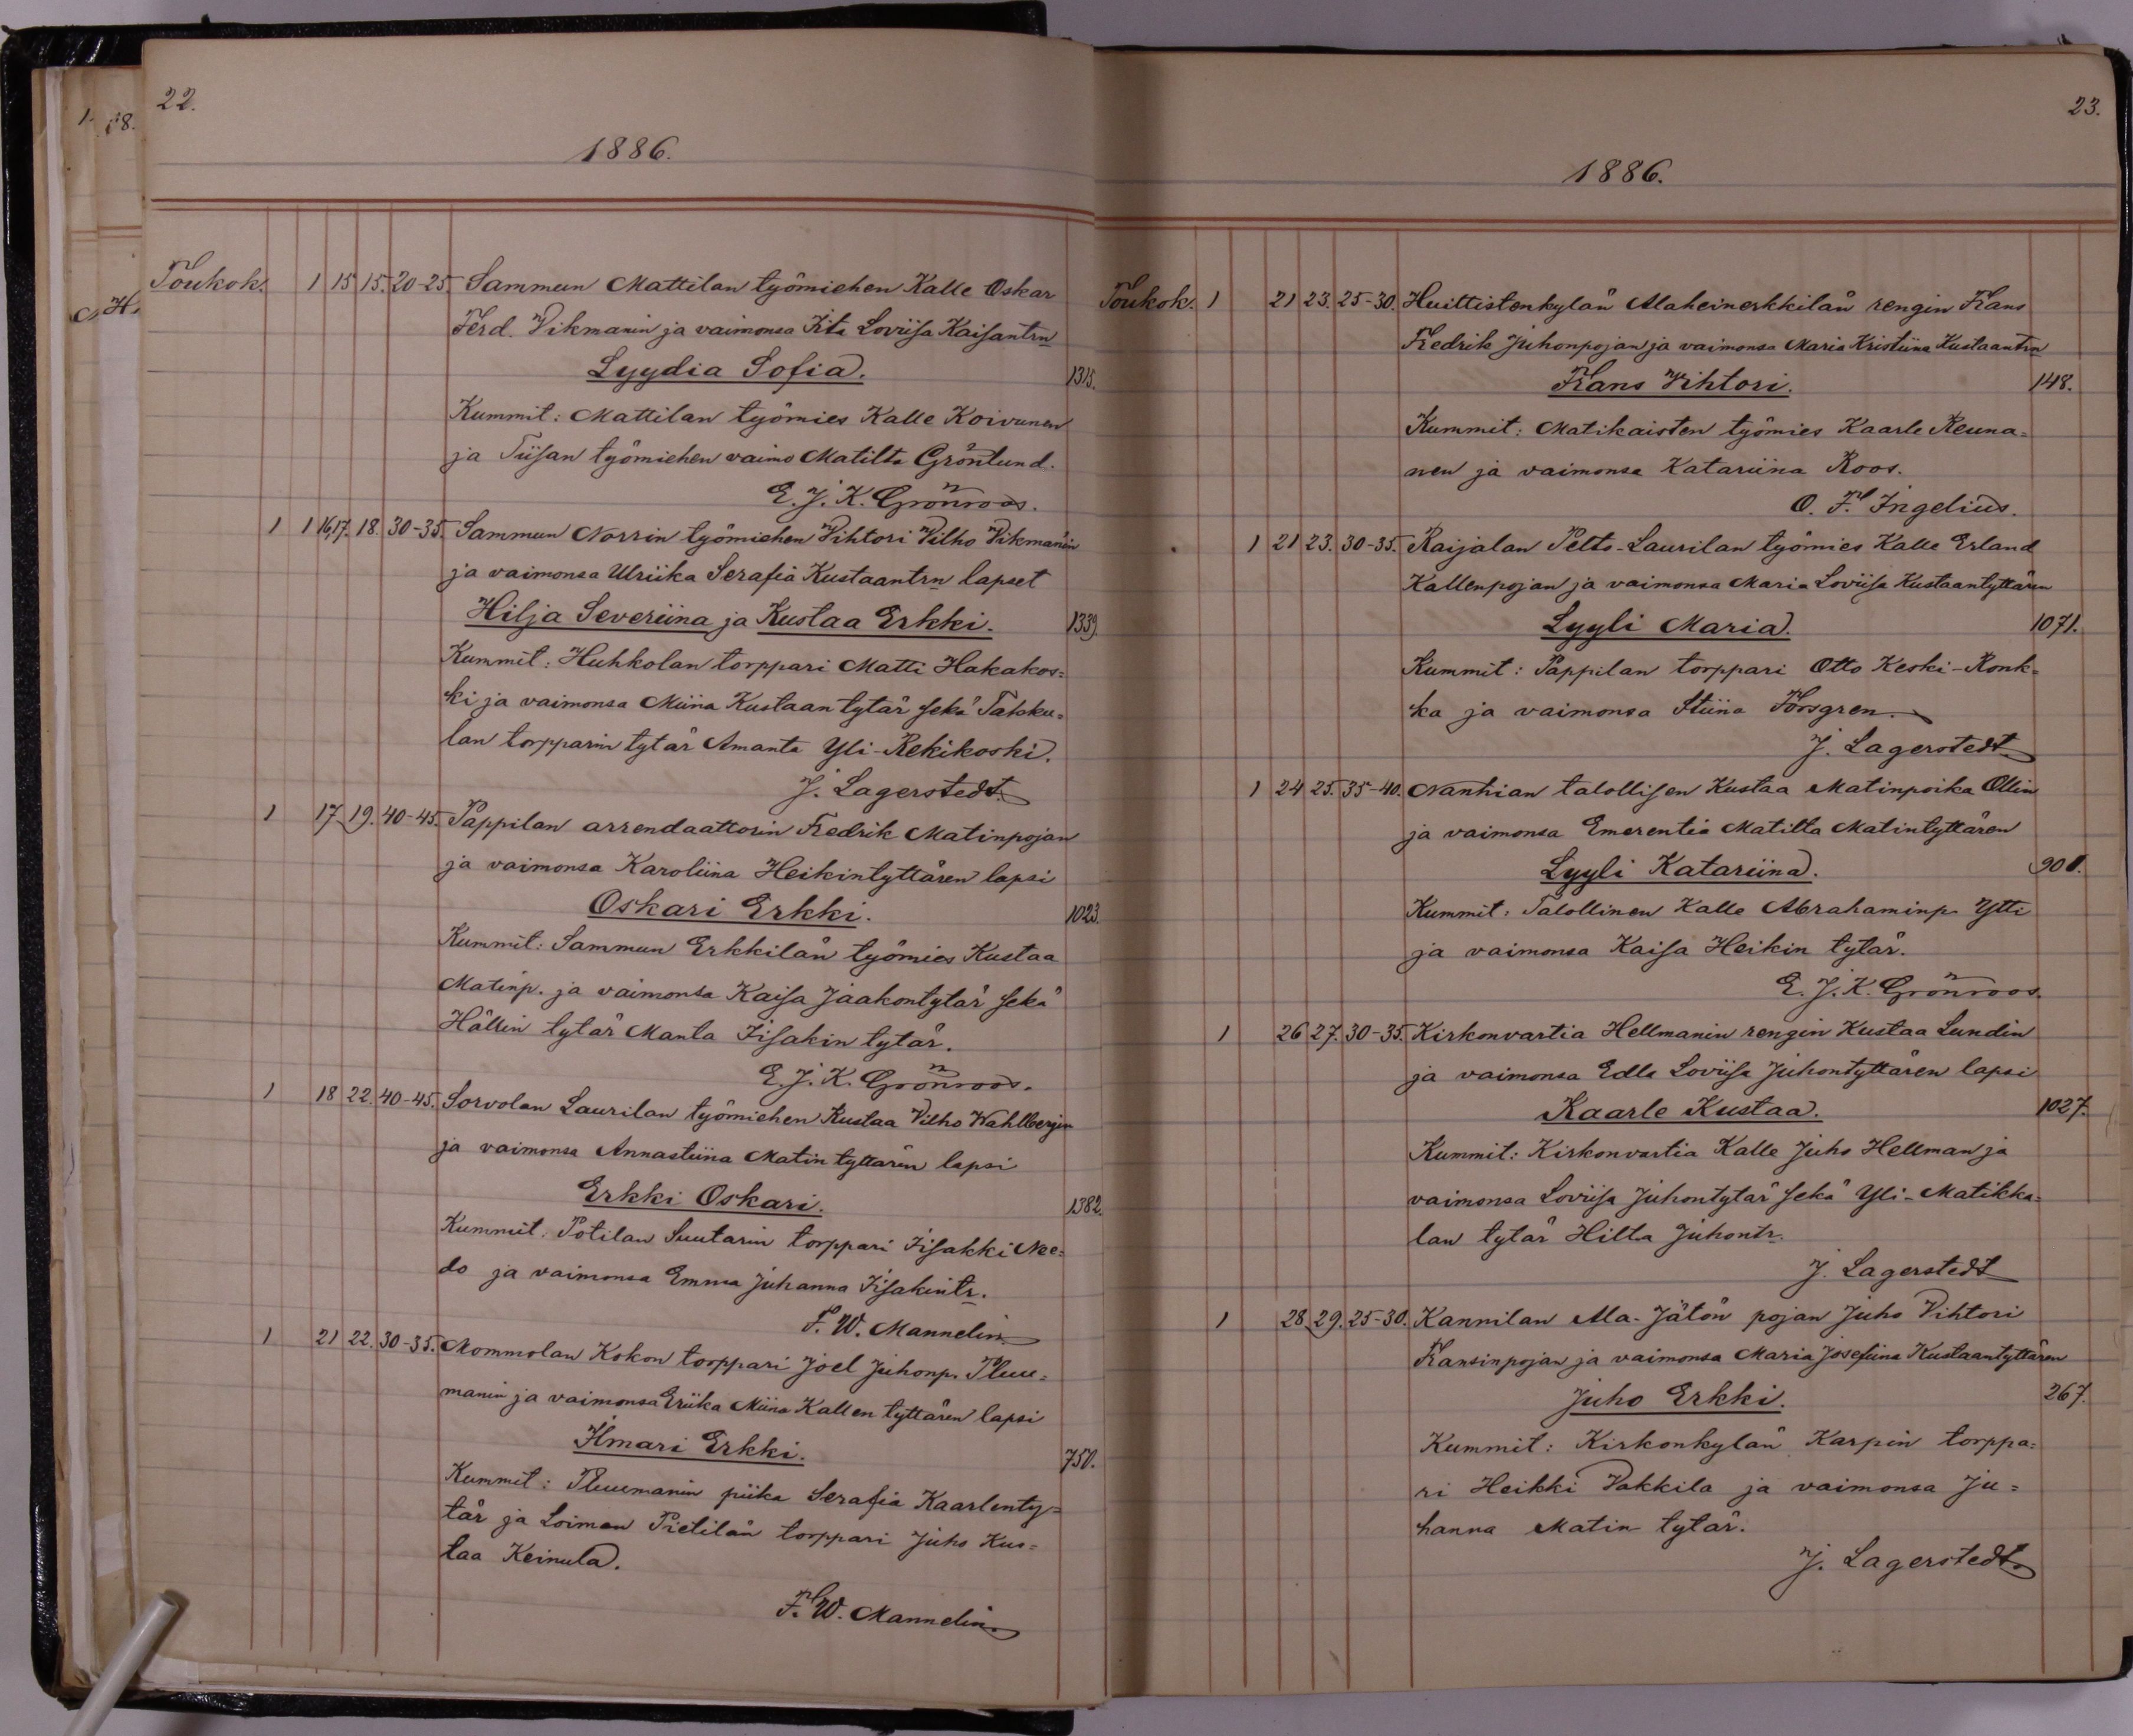 22.
1886.
Toukok. 1 15 15. 20-25. Sammun Mattilan työmiehen Kalle Oskar
Ferd. Vikmanin ja vaimonsa Iita Loviisa Kaisantrn
Lyydia Sofia. 1315.
Kummit: Mattilan työmies Kalle Koivunen
ja Tiisan työmiehen vaimo Matilta Grönlund.
E. J. K. Grönroos.
1 1 16,17. 18. 30-35. Sammun Norrin työmiehen Vihtori Vilho Vikmanin
ja vaimonsa Ulriika Serafia Kustaantrn lapset
Hilja Severiina ja Kustaa Erkki. 1339.
Kummit: Huhkolan torppari Matti Hakakos=
ki ja vaimonsa Miina Kustaantytär sekä Takku=
lan torpparin tytär Amanta Yli-Rekikoski.
J. Lagerstedt.
1 17 19. 40-45. Pappilan arrendaattorin Fredrik Matinpojan
ja vaimonsa Karoliina Heikintyttären lapsi
Oskari Erkki. 1023.
Kummit: Sammun Erkkilän työmies Kustaa
Matinp. ja vaimonsa Kaisa Jaakontytär sekä
Hällin tytär Manta Iisakin tytär.
E. J. K. Grönroos.
1 18 22. 40-45. Sorvolan Laurilan työmiehen Kustaa Vilho Wahlbergin
ja vaimonsa Annastiina Matintyttären lapsi
Erkki Oskari. 1382.
Kummit. Potilan Suutarin torppari Iisakki Nee=
do ja vaimonsa Emma Juhanna Iisakintr.
F. W. Mannelin
1 21 22. 30-35. Mommolan Kokon torppari Joel Juhonp. Pluu=
manin ja vaimonsa Eriika Miina Kallen tyttären lapsi
Ilmari Erkki. 750.
Kummit: Pluumanin piika Serafia Kaarlenty=
tär ja Loiman Pietilän torppari Juho Kus=
taa Keinula.
F. W. Mannelin.
23.
1886.
Toukok. 1 21 23. 25-30. Huittistenkylän Alaheinerkkilän rengin Frans
Fredrik Juhonpojan ja vaimonsa Maria Kristiina Kustaantrn
Frans Vihtori. 148.
Kummit: Matikaisten työmies Kaarle Reuna=
nen ja vaimonsa Katariina Roos.
O. F. Ingelius.
1 21 23. 30-35. Raijalan Pelto-Laurilan työmies Kalle Erland
Kallenpojan ja vaimonsa Maria Loviisa Kustaantyttären
Lyyli Maria. 1071.
Kummit: Pappilan torppari Otto Keski-Ronk=
ka ja vaimonsa Stiina Forsgren.
J. Lagerstedt.
1 24 25. 35-40. Nanhian talollisen Kustaa Matinpoika Ollin
ja vaimonsa Emerentia Matilta Matintyttären
Lyyli Katariina.
Kummit: Talollinen Kalle Abrahaminp. Ytti
ja vaimonsa Kaisa Heikin tytär.
E. J. K. Grönroos.
1 26 27. 30-35. Kirkonvartia Hellmanin rengin Kustaa Lundin
ja vaimonsa Edla Loviisa Juhontyttären lapsi
Kaarle Kustaa. 1027.
Kummit: Kirkonvartia Kalle Juho Hellman ja
vaimonsa Loviisa Juhontytär sekä Yli-Matikka=
lan tytär Hilta Juhontr.
J. Lagerstedt
1 28 29. 25-30. Kannilan Ala-Jätön pojan Juho Vihtori
Fransinpojan ja vaimonsa Maria Josefiina Kustaantyttären
Juho Erkki. 267.
Kummit: Kirkonkylän Karpin torppa=
ri Heikki Vakkila ja vaimonsa Ju=
hanna Matin tytär.
J. Lagerstedt.